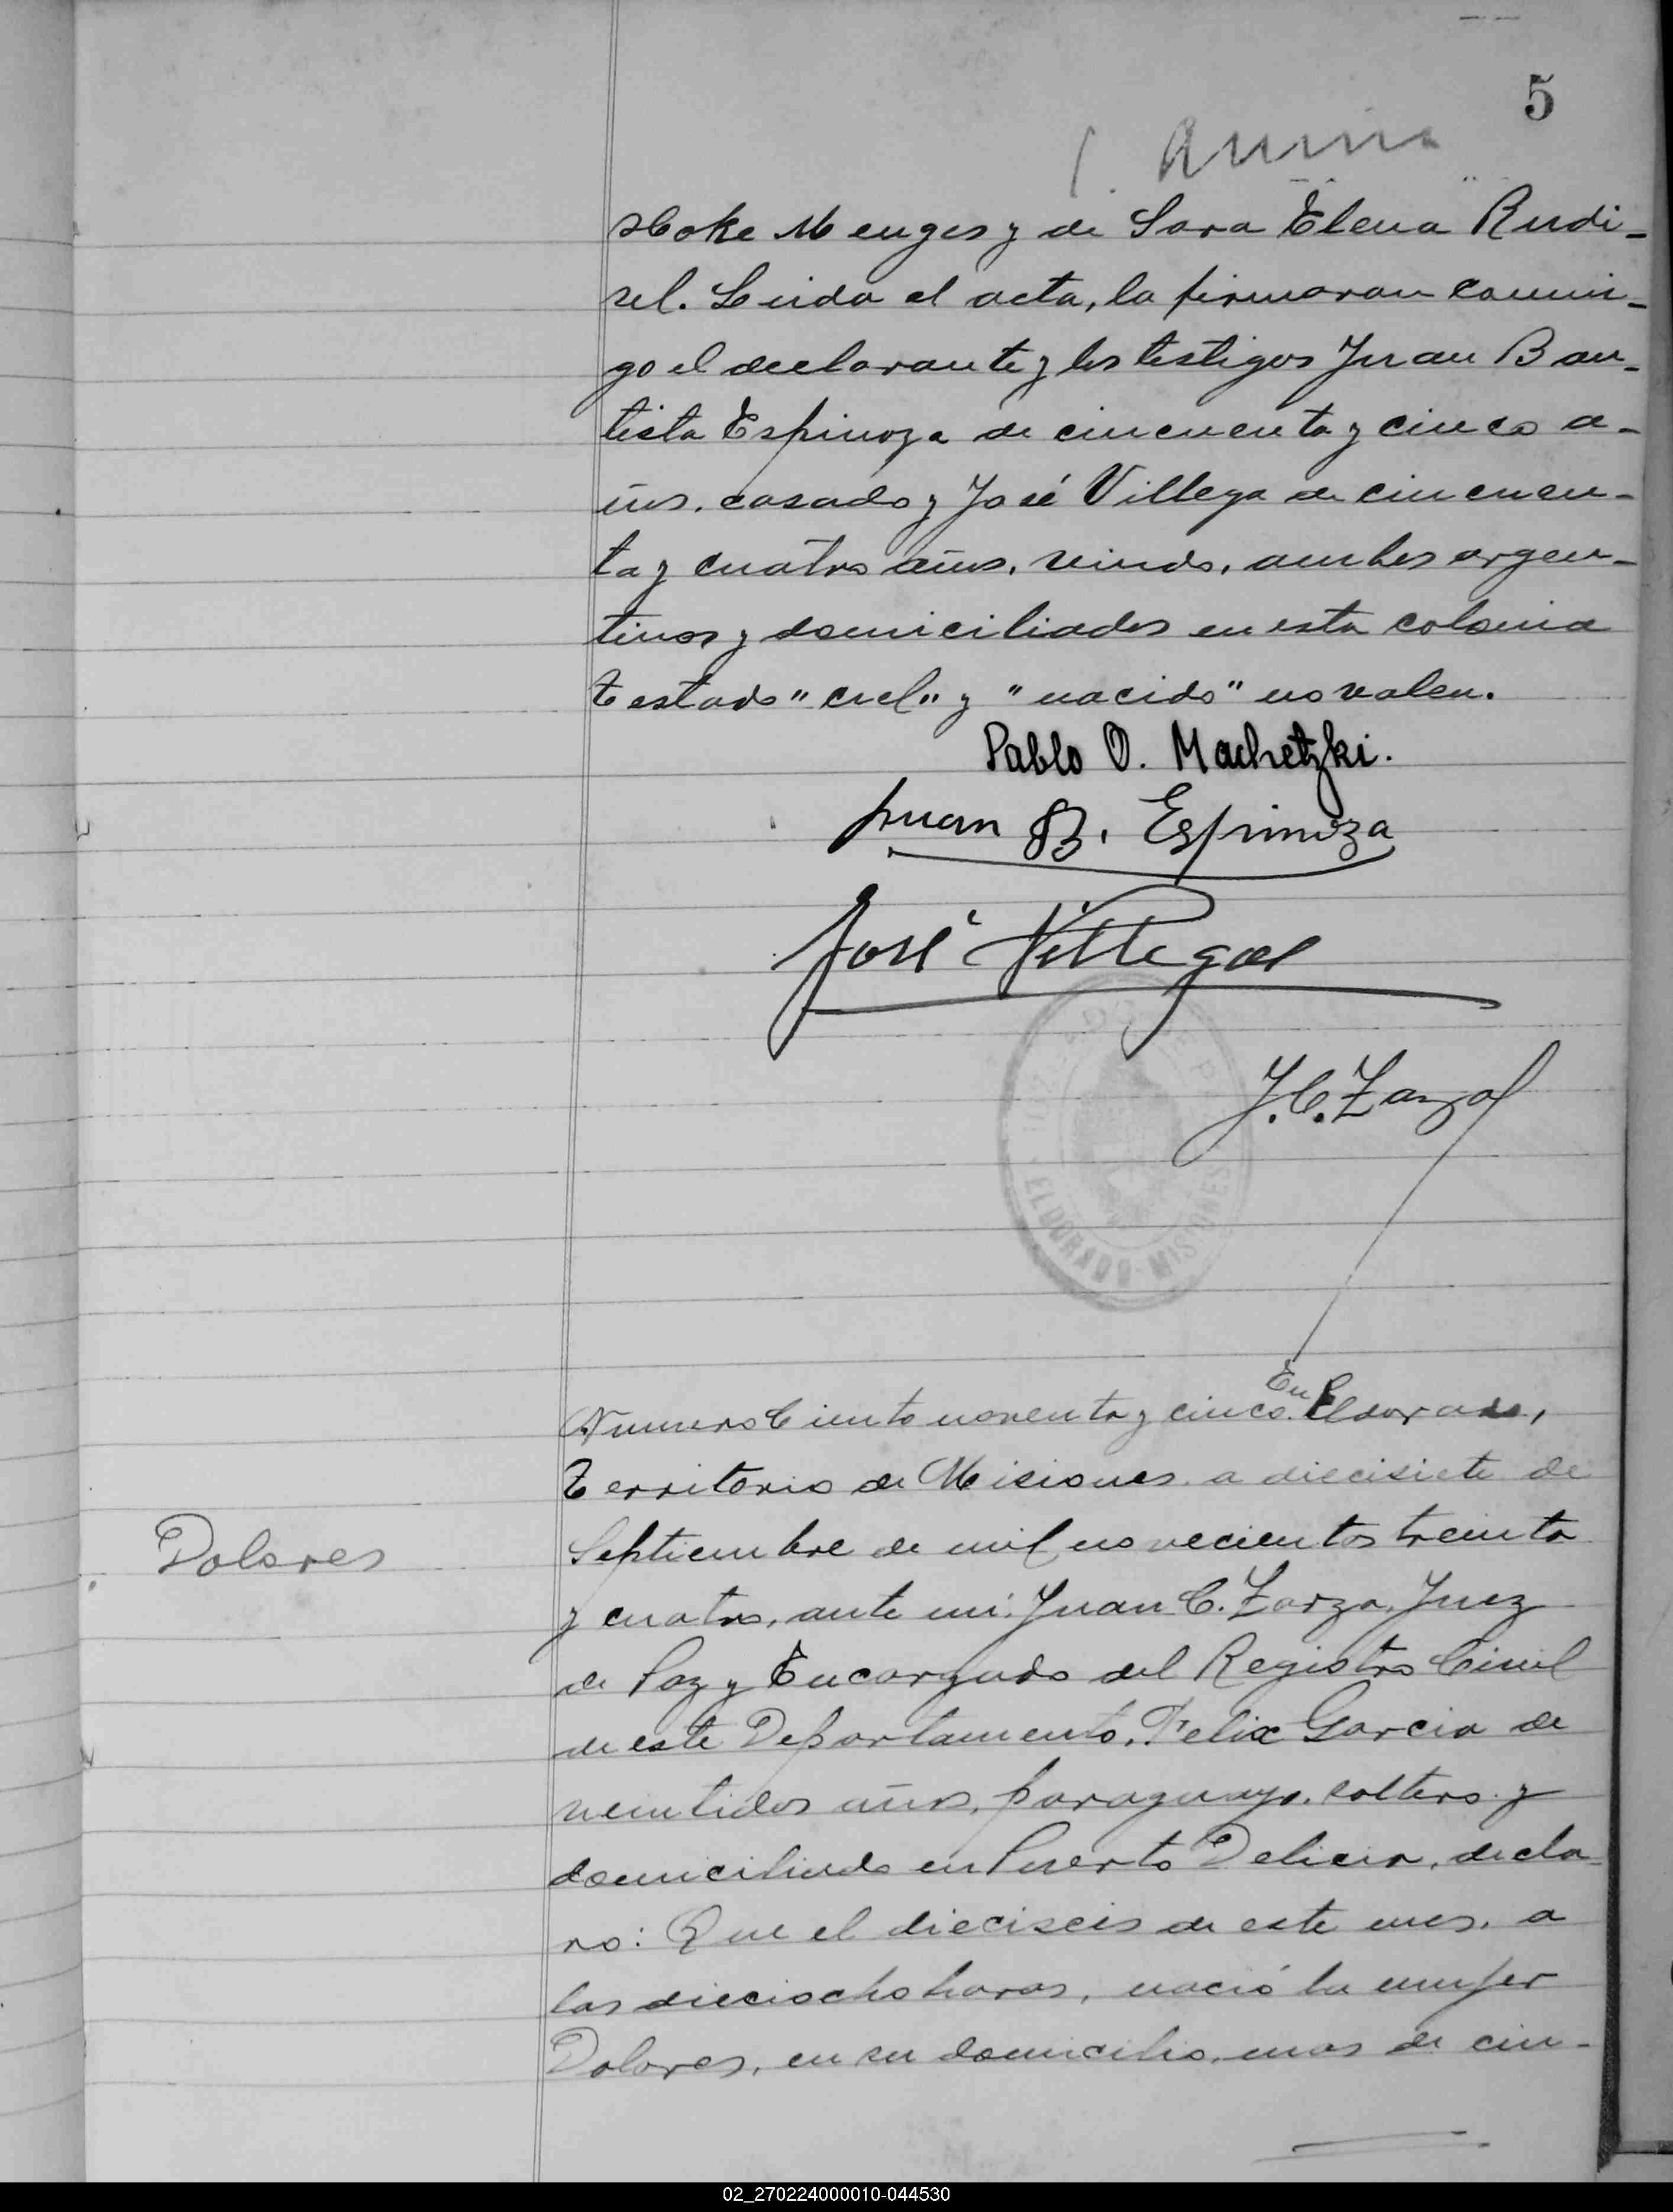 5
Hoke Menges y de Sara Elena Rudi-
sel. Leida el acta, la firmaran conmi-
go el declarante y los testigos Juan Bau-
tista Espinoza de cincuenta y cinco a-
ños, casado y José Villega de cincuen-
ta y cuatro años, viudo, ambos argen-
tinos y domiciliados en esta colonia
Testado "cuel" y "nacido" no valen.
Pablo O. Machetzki.
Juan B. Espinoza
José Villegas
J.C. Zarza
ELDORADO - MISIONES
Numero Ciento noventa y cinco. En Eldorado,
Territorio de Misiones a diecisiete de
Dolores
Septiembre de mil novecientos treinta
y cuatro, ante mi: Juan C. Zarza, Juez
de Paz y Encargado del Registro Civil
de este Departamento, Felix Garcia de
veintidos años, paraguayo, soltero y
domiciliado en Puerto Delicia, decla-
ro: Que el dieciseis de este mes, a
las dieciocho horas, nació la mujer
Dolores, en su domicilio, mas de cin-
02_270224000010-044530